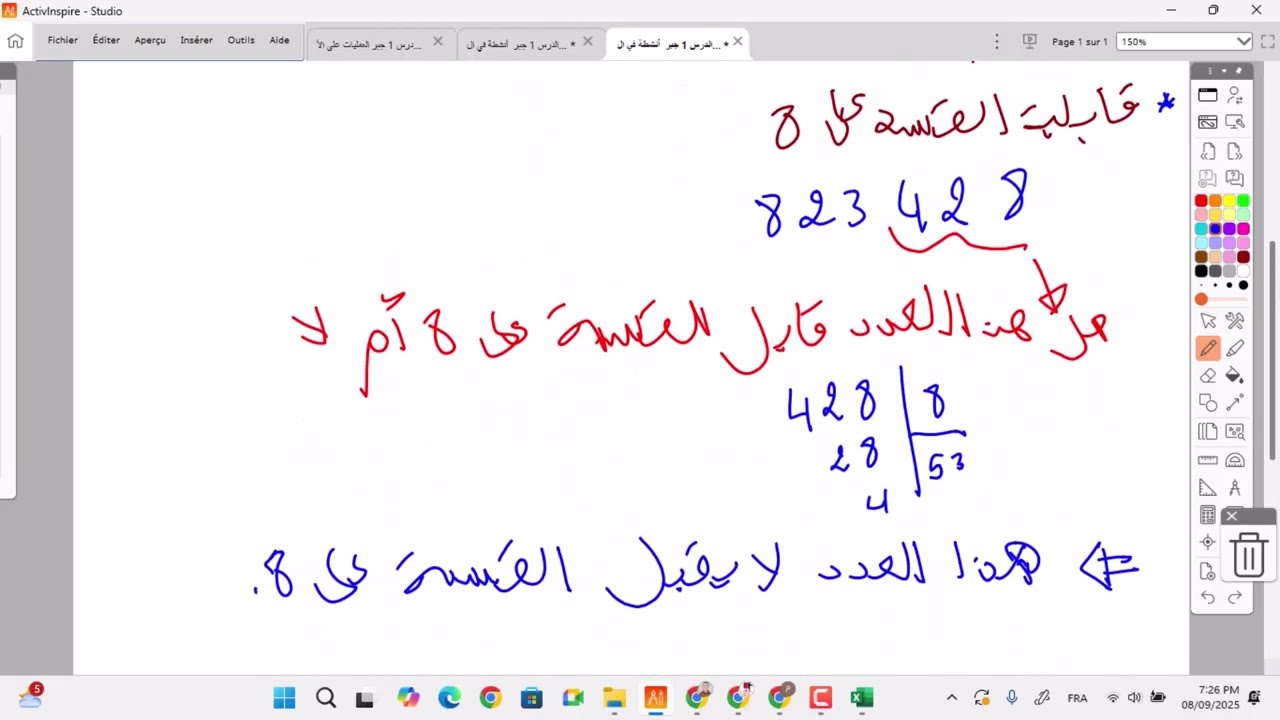 ActivInspire - Studio
Fichier Éditer Aperçu Insérer Outils Aide
...درس 1 جبر العمليات على الأ
* ...الدرس 1 جبر أنشطة في ال
* ...الدرس 1 جبر أنشطة في ال
Page 1 sur 1 150%
* قابلية القسمة على 8
823 428
هل هذا العدد قابل القسمة على 8 أم لا
428 8
28 53
4
⇐ هذا العدد لا يقبل القسمة على 8.
5
FRA
7:26 PM
08/09/2025